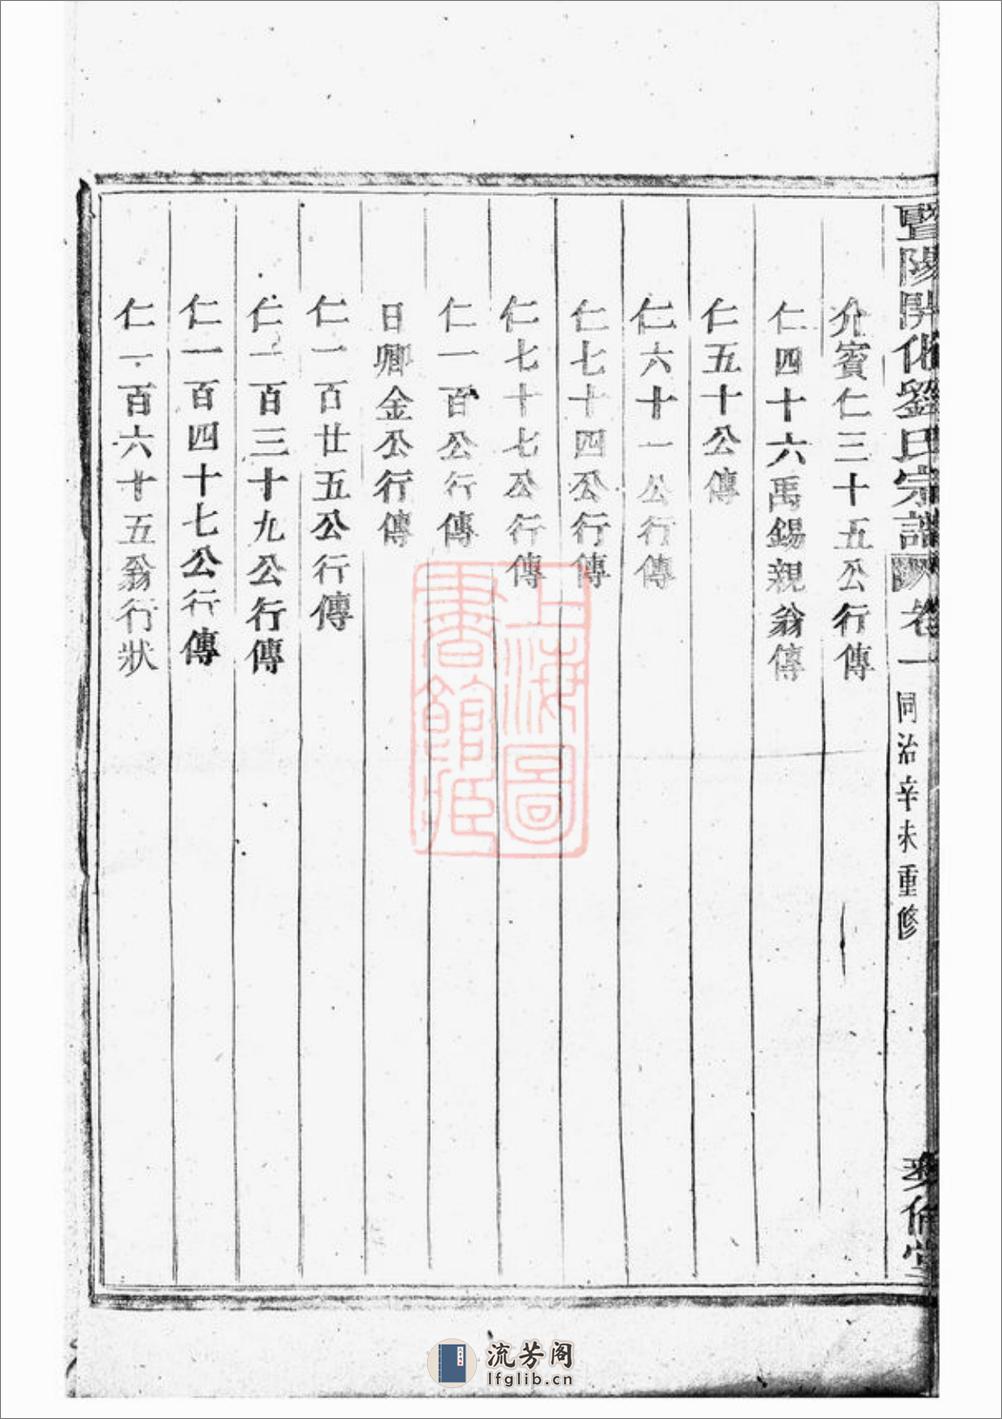 暨陽開化劉氏宗譜 卷一 同治辛未重修 彝倫堂
介賓仁三十五公行傳
仁四十六禹錫親翁傳
仁五十公傳
仁六十一公行傳
仁七十四公行傳
仁七十七公行傳
仁一百公行傳
日卿金公行傳
仁一百廿五公行傳
仁一百三十九公行傳
仁一百四十七公行傳
仁一百六十五翁行狀
上海圖
書館藏
流芳阁
lfglib.cn